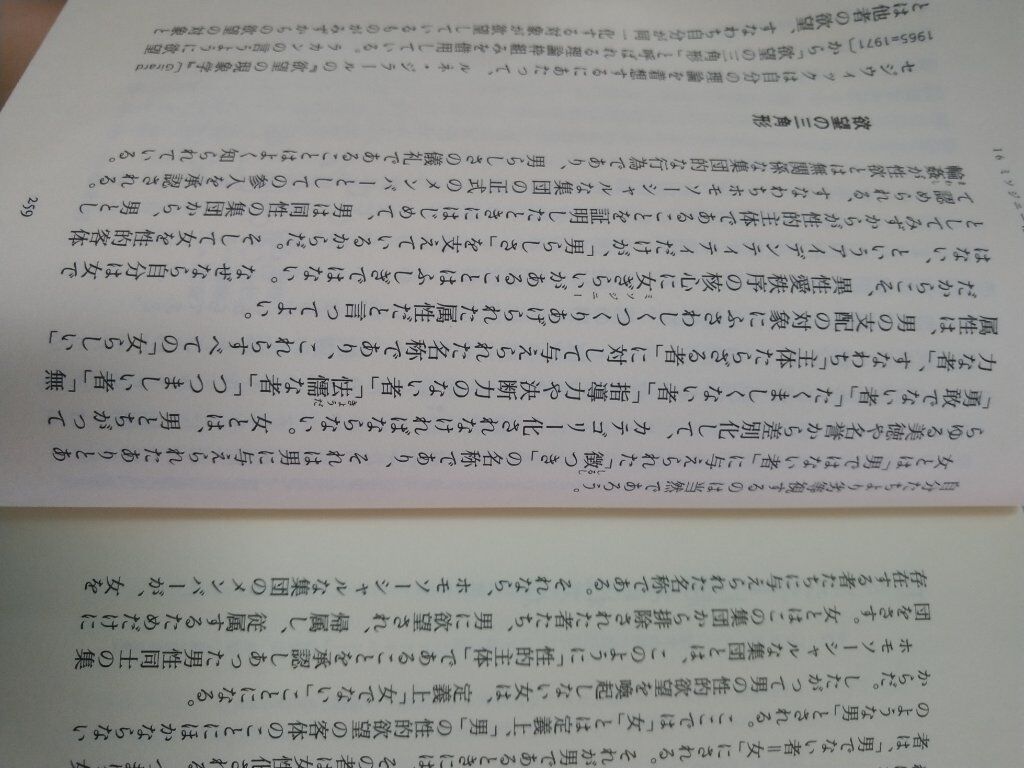 者は、「男でない者＝「女」にされる。それが男であるときには、その者は女性化され
のような男」とされる。ここでは「女」とは定義上「男」の性的欲望の客体のことにほかならない
からだ。したがって男の性的欲望を喚起しない女は、定義上「女でない」ことになる。
ホモソーシャルな集団とは、このように「性的主体」であることを承認しあった男性同士の集
団をさす。女とはこの集団から排除された者たち、男に欲望され、帰属し、従属するためだけに
存在する者たちに与えられた名称である。それなら、ホモソーシャルな集団のメンバーが、女を
自分たちより劣等視するのは当然であろう。
女とは「男ではない者」に与えられた「徴つき」の名称であり、それは男に与えられたありとあ
らゆる美徳や名誉から差別化して、カテゴリー化されなければならない。女とは、男とちがって
「勇敢でない者」「たくましくない者」「指導力や決断力のない者」「怯懦な者」「つつましい者」「無
力な者」、すなわち「主体たらざる者」に対して与えられた名称であり、これらすべての「女らしい」
属性は、男の支配の対象にふさわしくつくりあげられた属性だと言ってよい。
だからこそ、異性愛秩序の核心に女ぎらいがあることはふしぎではない。なぜなら自分は女で
はない、というアイデンティティだけが、「男らしさ」を支えているからだ。そして女を性的客体
としてみずからが性的主体であることを証明したときにはじめて、男は同性の集団から、男とし
て認められる、すなわちホモソーシャルな集団の正式のメンバーとしての参入を承認される。
輪姦が性欲とは無関係な集団的な行為であり、男らしさの儀礼であることはよく知られている。
欲望の三角形
セジウィックは自分の理論を着想するにあたって、ルネ・ジラールの『欲望の現象学』[Girard
1965=1971]から、「欲望の三角形」と呼ばれる理論枠組みを借用している。ラカンの言うように欲望
とは他者の欲望、すなわち自分が同一化する対象が欲望しているものがみずからの欲望の対象と
16 ミソジニー
259